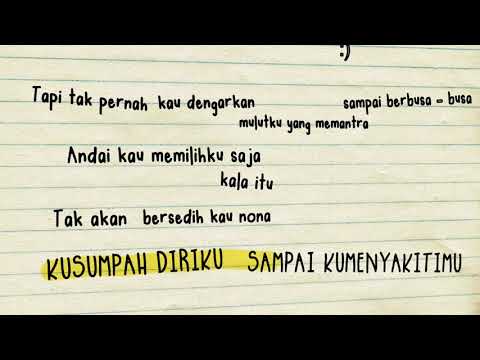 :)
Tapi tak pernah kau dengarkan sampai berbusa - busa
mulutku yang memantra
Andai kau memilihku saja
kala itu
Tak akan bersedih kau nona
KUSUMPAH DIRIKU SAMPAI KUMENYAKITIMU